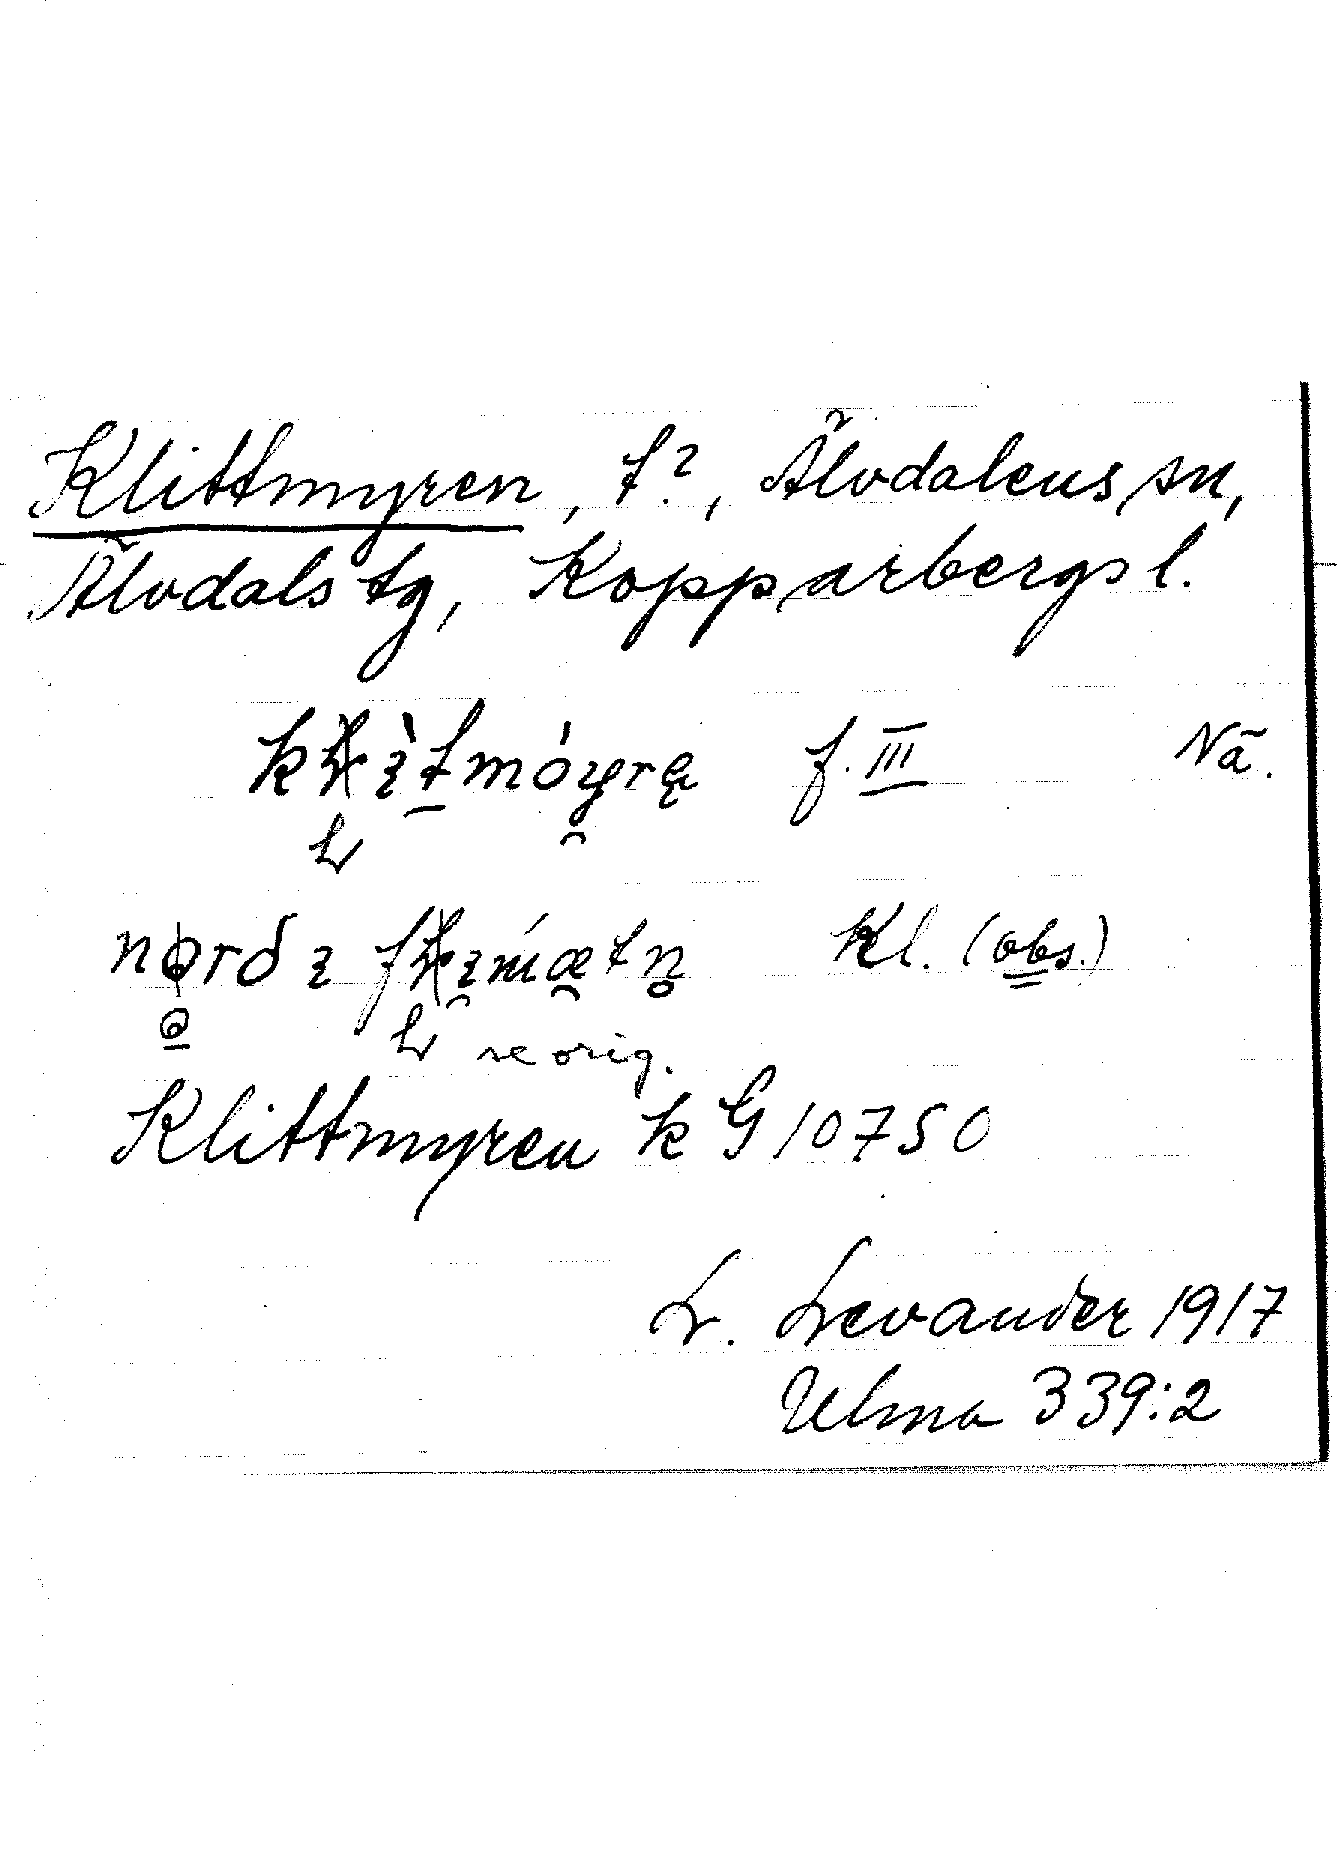 Klittmyren, t?, Älvdalens sn,
Älvdals tg, Kopparbergs l.
f. III Nä.
Kl. (obs.)
se orig.
Klittmyren k G 10750
L. Levander 1917
Ulma 339:2